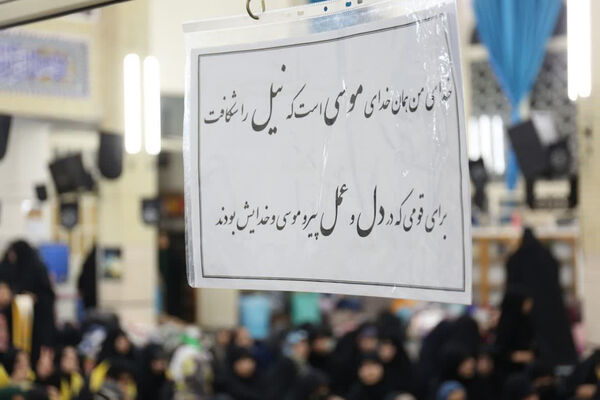 خدای من همان خدای موسی است که نیل را شکافت
برای قومی که در دل و عمل پیرو موسی و خدایش بودند